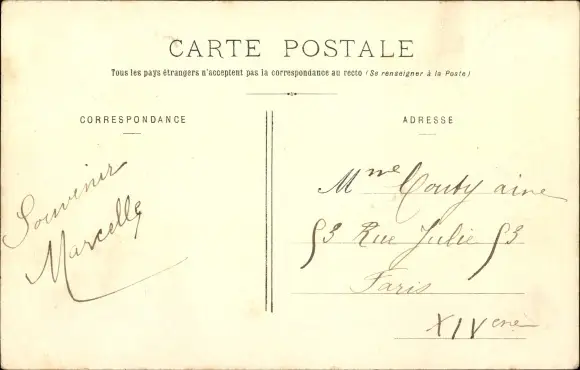 CARTE POSTALE
Tous les pays étrangers n'acceptent pas la correspondance au recto (Se renseigner à la Poste)
CORRESPONDANCE
Souvenir
Marcelle
ADRESSE
Mme Couty ainé
53 Rue Julie 53
Paris
XIVeme